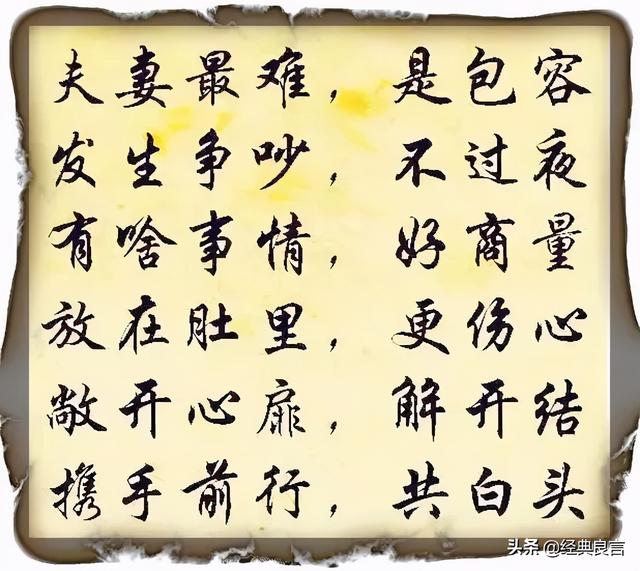 夫妻最难，是包容
发生争吵，不过夜
有啥事情，好商量
放在肚里，更伤心
敞开心扉，解开结
携手前行，共白头
头条 @经典良言